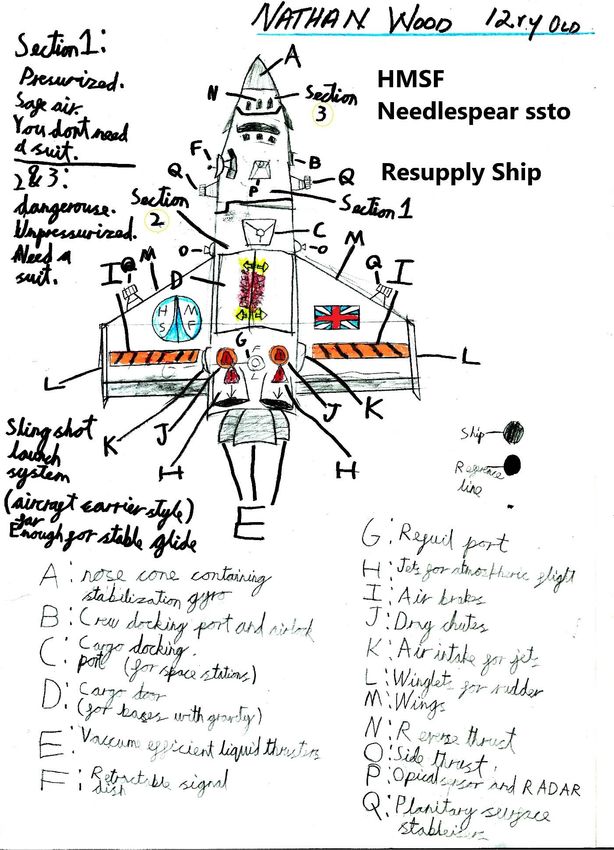 NATHAN WOOD 12.ry OLD
HMSF
Needlespear ssto
Resupply Ship
Section 1:
Presurized.
Sage air.
You dont need
a suit.
2 & 3:
dangerouse.
Unpressurized.
Need a
suit.
A
N
Section
3
F
B
Q
Q
P
Section 1
Section
2
C
O
O
M
M
I
Q
Q
I
D
H M
S F
G
L
L
K
J
H
J
K
H
E
Sling shot
launch
system
(aircraft carrier style)
far
Enough for stable glide
Ship
Reference
line
A: nose cone containing
stabilization gyro
B: Crew docking port and airlock
C: Cargo docking.
port (for space stations)
D: Cargo door
(for bases with gravity)
E: Vaccume efficient liquid thrusters
F: Retractable signal
dish
G: Refuil port
H: Jets for atmospheric flight
I: Air brakes
J: Drag chutes
K: Air intake for jets
L: Winglets for rudder
M: Wings
N: Reverse thrust
O: Side thrust.
P: Opical sensor and RADAR
Q: Planitary surface